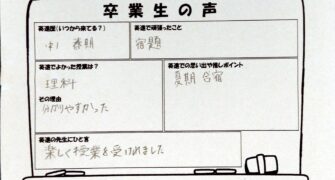 卒業生の声
英進歴(いつから来てる?)
中1 春期
英進で頑張ったこと
宿題
英進でよかった授業は?
理科
その理由
分かりやすかった
英進での思い出や推しポイント
夏期合宿
英進の先生にひと言
楽しく授業を受けれました